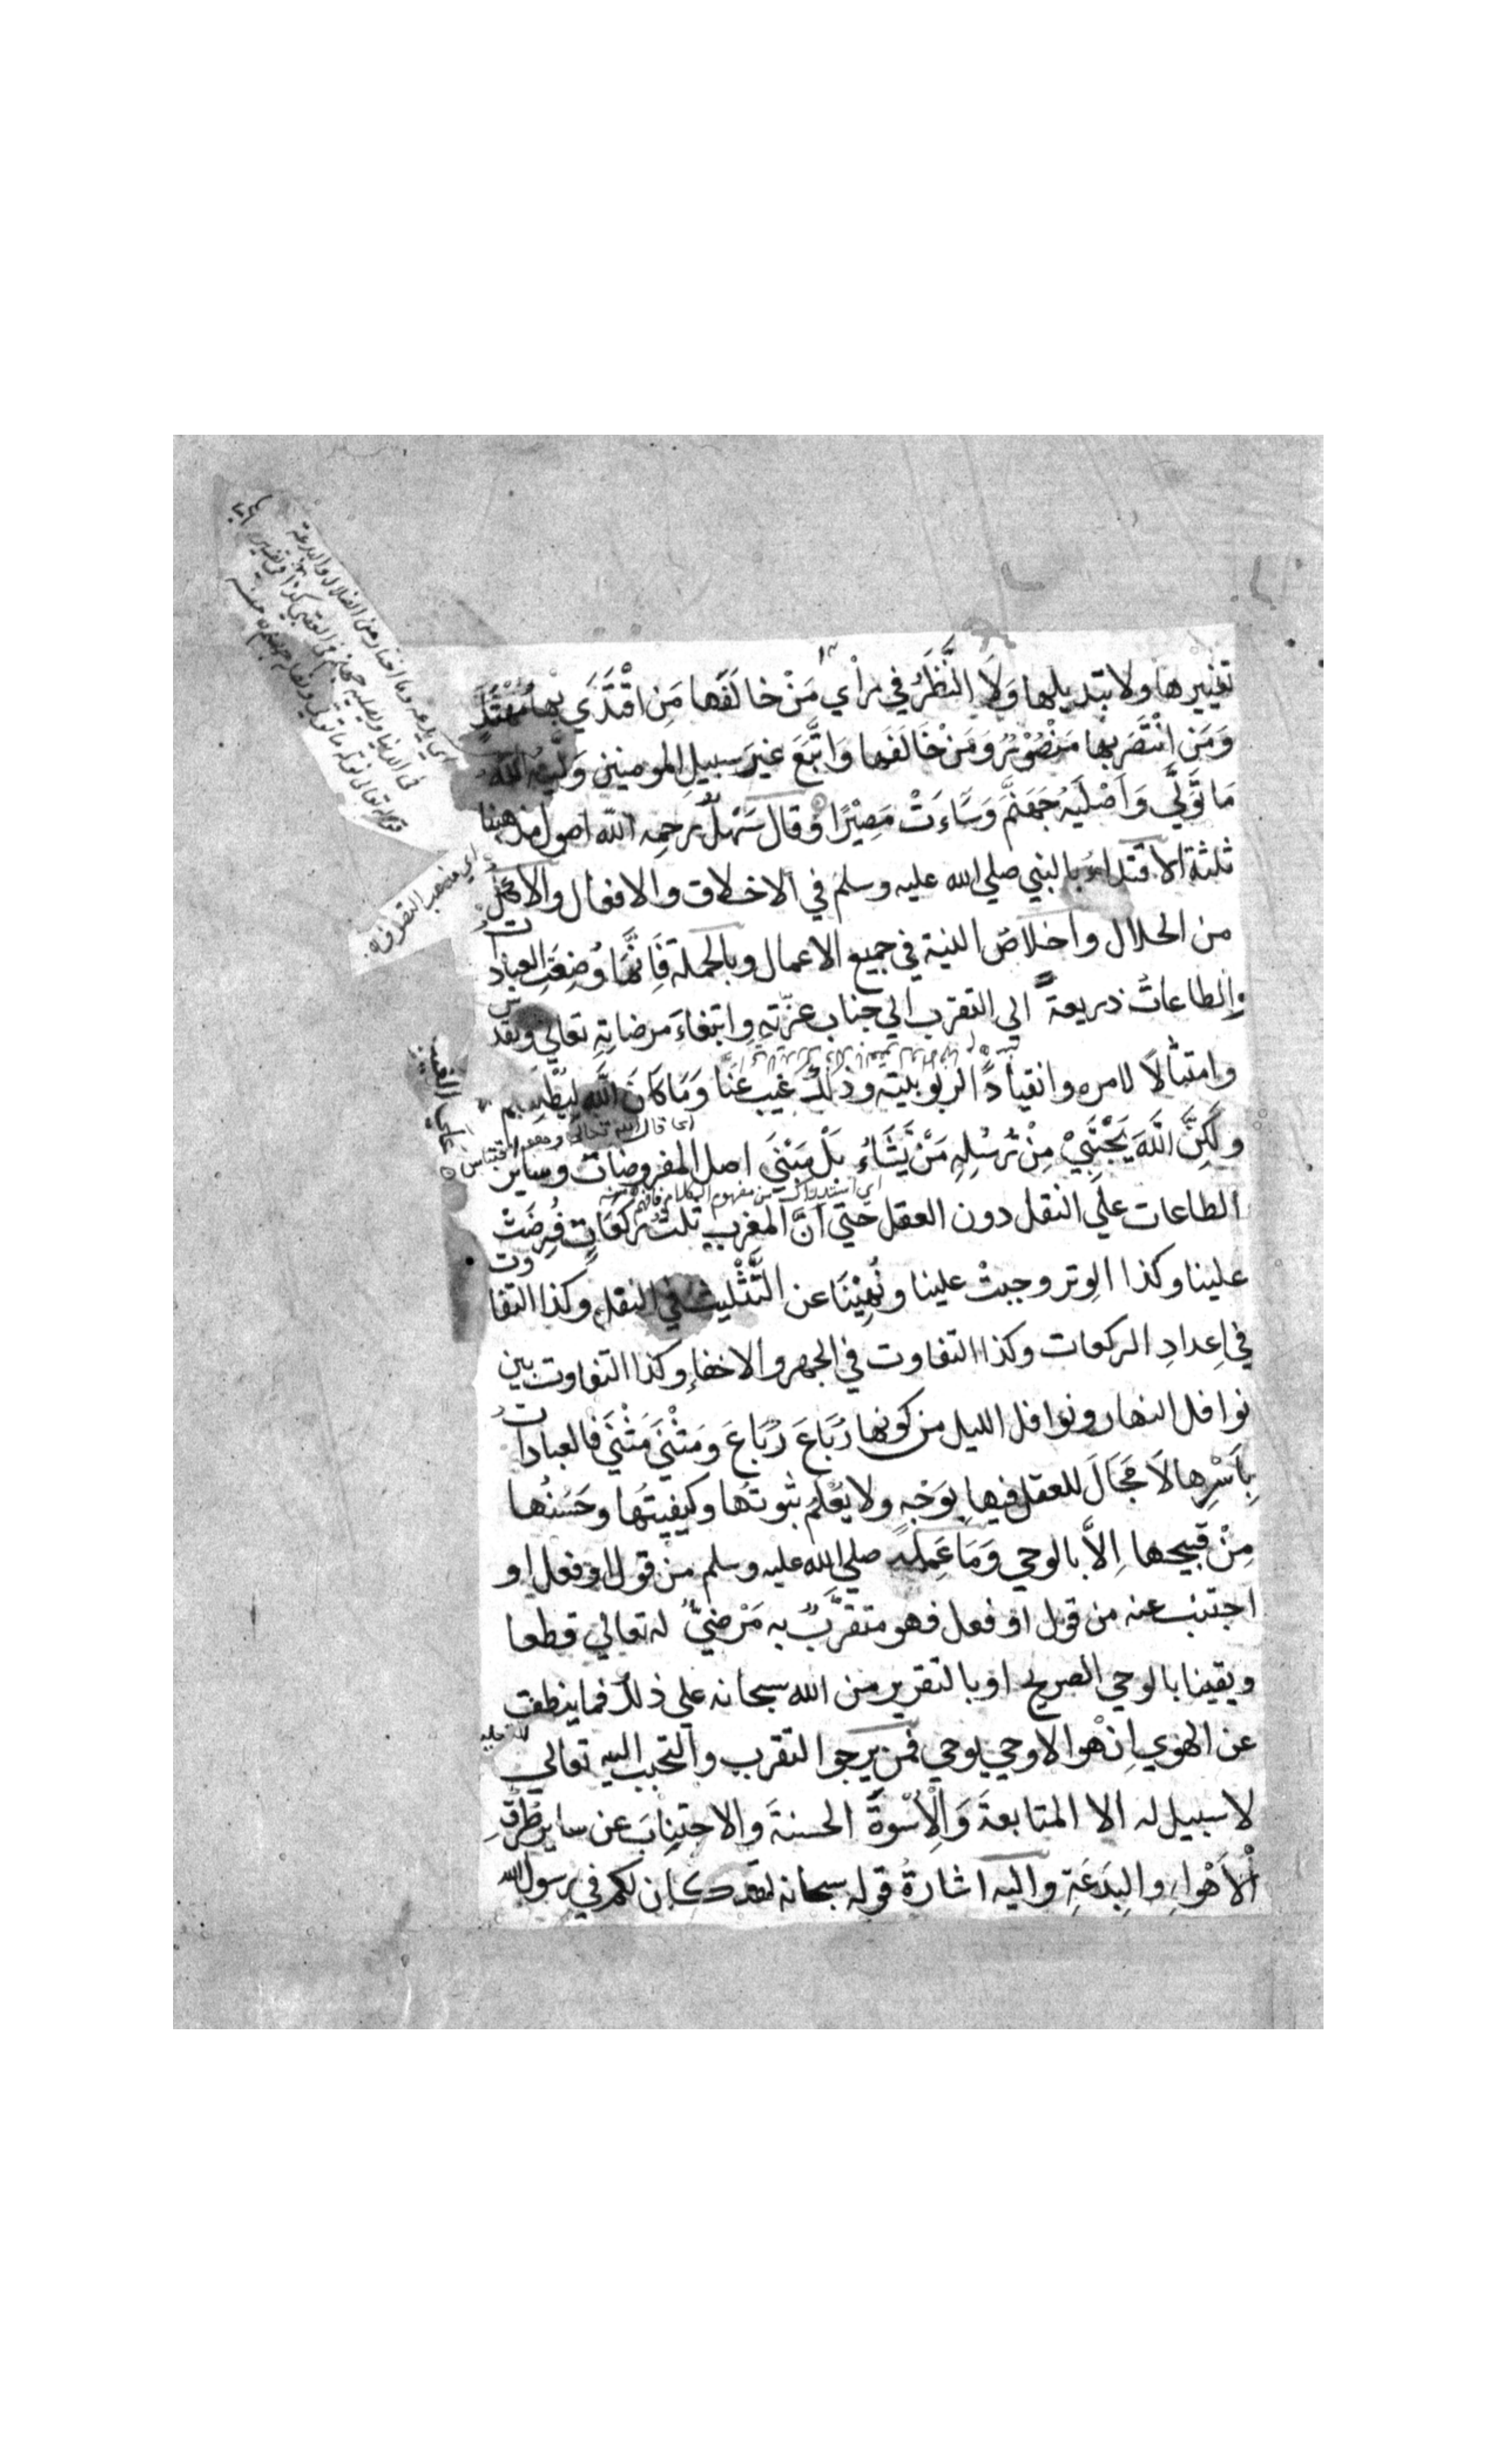 تغييرها ولا تبديلها وَلَا النَّظَرُ في رأي مَنْ خالَفَها مَنِ اقْتَدَي بِهَا مُهْتَدٍ
وَمَنِ انْتَصَرَ بِها مَنْصُوْرٌ وَمَنْ خَالَفَها وَاتَّبَعَ غيرَ سبيلِ المومنين وَلَّيهُ اللهُ
مَا تَوَلَّي وَاَصْلَيهُ جَهَنَّمَ وَسَاءَتْ مَصِيْرًا وقال سَهْلٌ رحمه الله اصول مذهبنا
ثلثة الاقتداءُ بالنبي صلي الله عليه وسلم في الاخلاق والافعال والاكل
من الحلال واخلاص النية في جميع الاعمال وبالجملة فَاِنَّهَا وُضِعَتِ العبادات
والطاعاتُ ذريعة الي التقرب الي جناب عزّتهِ وابتغاءَ مرضاتِهِ تعالي وتقدس
وامتثالًا لامره وانقيادًا لربوبيته وذلك غيب عَنَّا وَمَا كَانَ اللّٰهُ لِيُطْلِعَكم
علي الغيب
ولَكِنَّ اللّٰهَ يَجْتَبِيْ مِنْ رُّسُلِهِ مَنْ يَّشَاءُ بَلْ مَبْنَي اصل المفروضات وساير
اي قال الله تعالي وهو اقتباس
الطاعات علي النقل دون العقل حتي انَّ المغرب ثلثُ ركعَاتٍ فُرِضَتْ
اي استدراك من مفهوم الكلام
علينا وكذا الوتر وجبتْ علينا ونُهِيْنَا عن التَّثْلِيث في النفل وكذا التفاوت
في اعدادِ الركعات وكذا التفاوت في الجهر والاخفاء وكذا التفاوت بين
نوافل النهار ونوافل الليل من كونها رُبَاعَ رُبَاعَ ومَثْنَي مَثْنَي فالعباداتُ
بِاَسْرِها لَا مَجَالَ للعقل فيها بوَجْهٍ ولا يُعْلَمُ ثبوتُها وكيفيتُها وحَسَنُها
مِنْ قبيحها اِلَّا بالوحي وَمَا عَمِلَه صلي الله عليه وسلم من قول او فعل او
اجتنب عنه من قول او فعل فهو متقرَّبٌ به مَرْضيٌّ له تعالي قطعا
ويقينا بالوحي الصريح او بالتقرير من الله سبحانه علي ذلك فما ينطق
عن الهوي اِنْ هو الا وحي يوحي فمن يرجو التقرب والتحبب اليه تعالي
لا سبيل له الا المتابعةَ وَالْاُسْوَةَ الحسنةَ والاجتنابَ عن ساير طُرُقِ
الْاَهْواءِ والبِدَعَةِ واليه اشارةُ قوله سبحانه لقد كان لكم في رسول الله